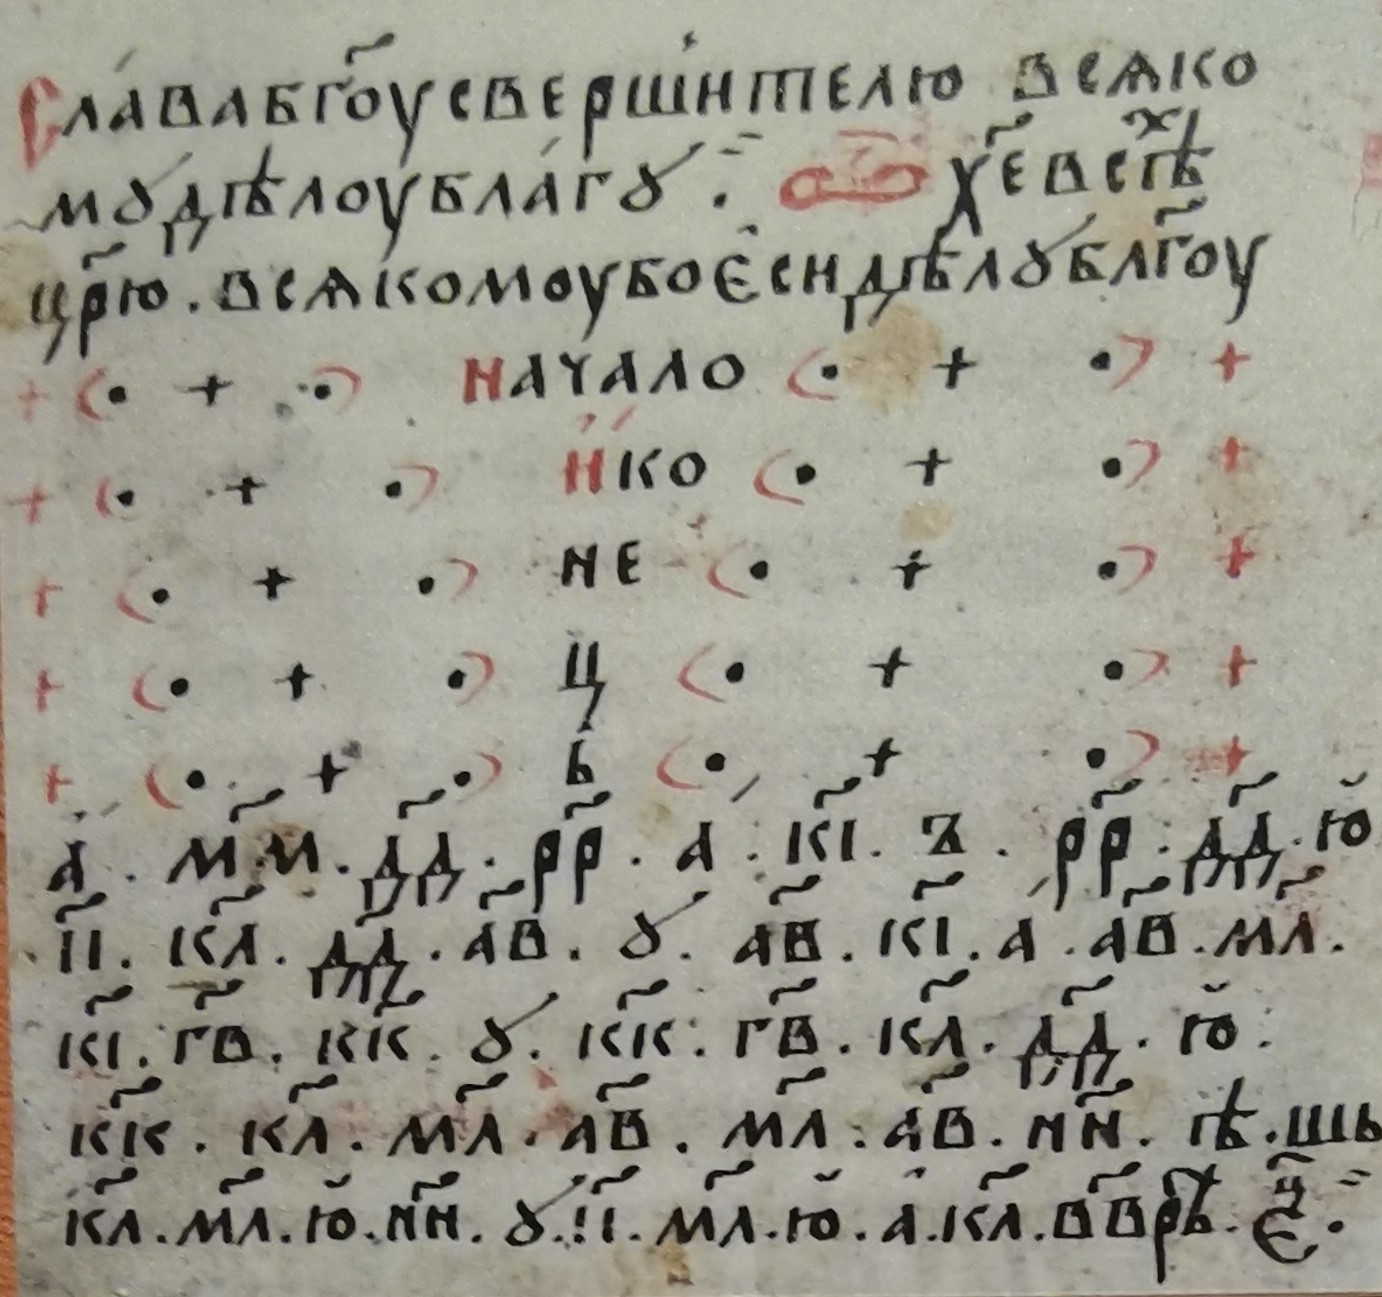 Сла́ва бг҃оу свершн́телю всѧко
мꙋ дѣлоу бла́гꙋ . хе҃ всѣх
цр҃ю . всѧкомоу бо є҆сн дѣлꙋ блг҃оу
+ (• + •) начало (• + •) +
+ (• + •) н ко (• + •) +
+ (• + •) не (• + •) +
+ (• + •) ц (• + •) +
+ (• + •) ь (• + •) +
а . м҃м . д҃д . р҃р . а . к҃і . ъ . р҃р . д҃д . ю
і҃і . к҃л . д҃д . а҃в . ꙋ . а҃в . к҃і . а . а҃в . м҃л .
к҃і . г҃в . к҃к . ꙋ . к҃к . г҃в . к҃л . д҃д . ю .
к҃к . к҃л . м҃л . а҃в . м҃л . а҃в . н҃н . ѣ . шь
к҃л . м҃л . ю . н҃н . ꙋ . і҃і . м҃л . ю . а . к҃л . в҃врь .